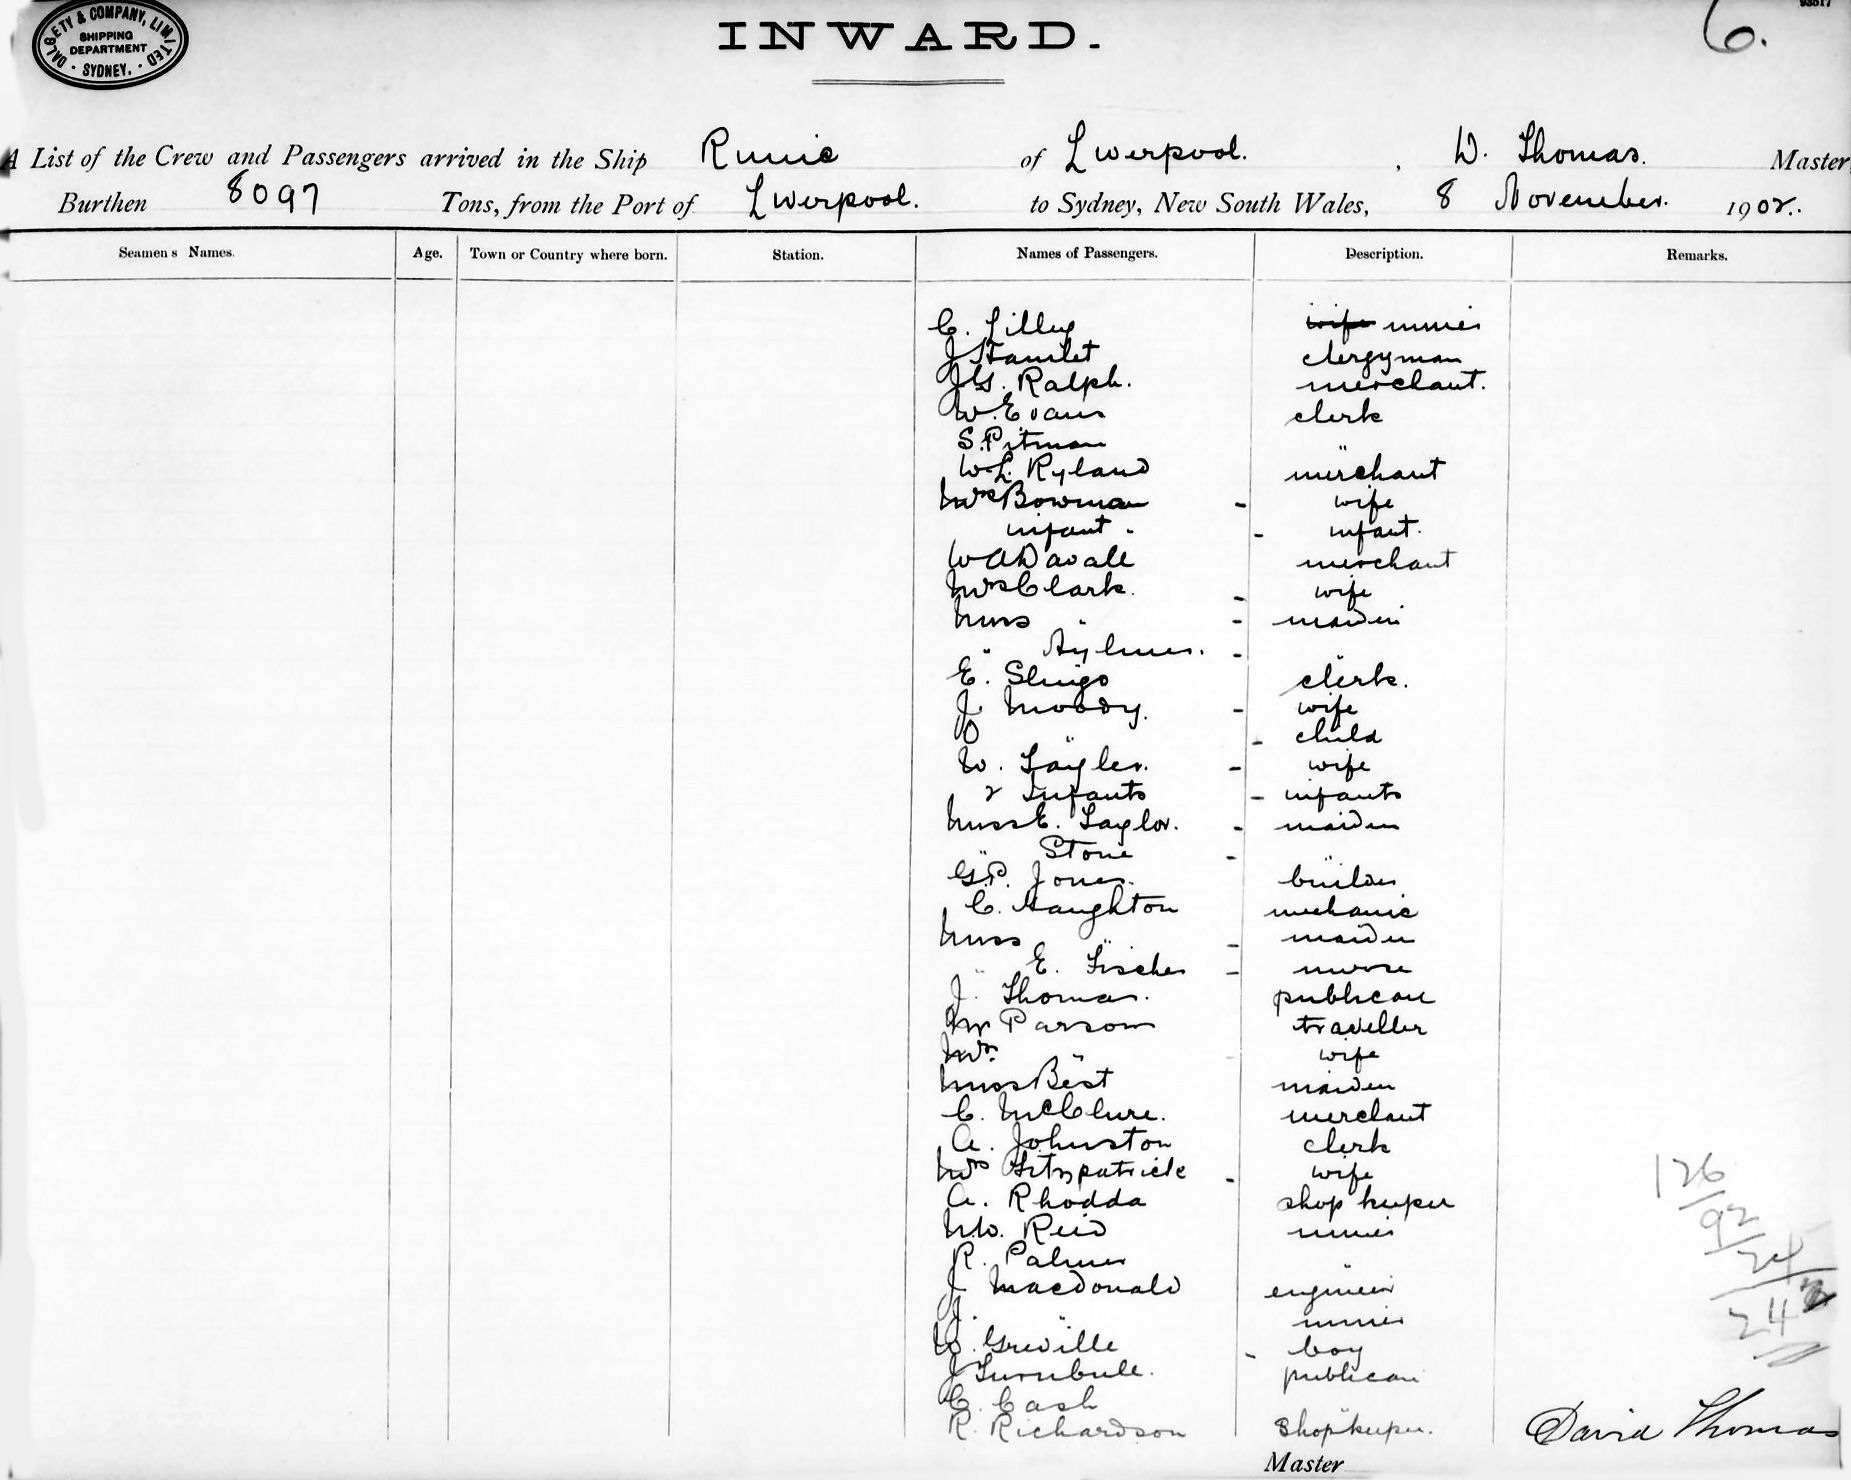 DALGETY & COMPANY, LIMITED
SHIPPING
DEPARTMENT
· SYDNEY. ·
93517
INWARD.
6.
A List of the Crew and Passengers arrived in the Ship Runic of Liverpool. , D. Thomas. Master,
Burthen 8097 Tons, from the Port of Liverpool. to Sydney, New South Wales, 8 November. 1902.
Seamen's Names. Age. Town or Country where born. Station. Names of Passengers. Description. Remarks.
C. Lilley wife miner
J Hamlet clergyman
J G. Ralph. merchant.
W. Evans clerk
S. Pitman "
W L. Ryland merchant
Mrs Bowman - wife
infant - - infant.
W A Davall merchant
Mrs Clark. - wife
Miss " - maiden
" Aylmer. - "
E. Slingo clerk.
J. Moody. - wife
O " - child
W. Tayler. - wife
2 Infants - infants
Miss E. Taylor. - maiden
" Stone - "
G. P. Jones. builder
C. Haughton mechanic
Miss " - maiden
" E. Fischer - nurse
J. Thomas. publican
Mr Parsons traveller
Mrs. " wife
Miss Best maiden
C. McClure. merchant
A. Johnston clerk
Mrs Fitzpatrick - wife
A. Rhodda shop keeper
W. Reid miner
R. Palmer "
J Macdonald engineer
J. " miner
W. Greville - boy
J Turnbull. publican
C. Cash "
R. Richardson shopkeeper.
126
92
24
242
David Thomas
Master